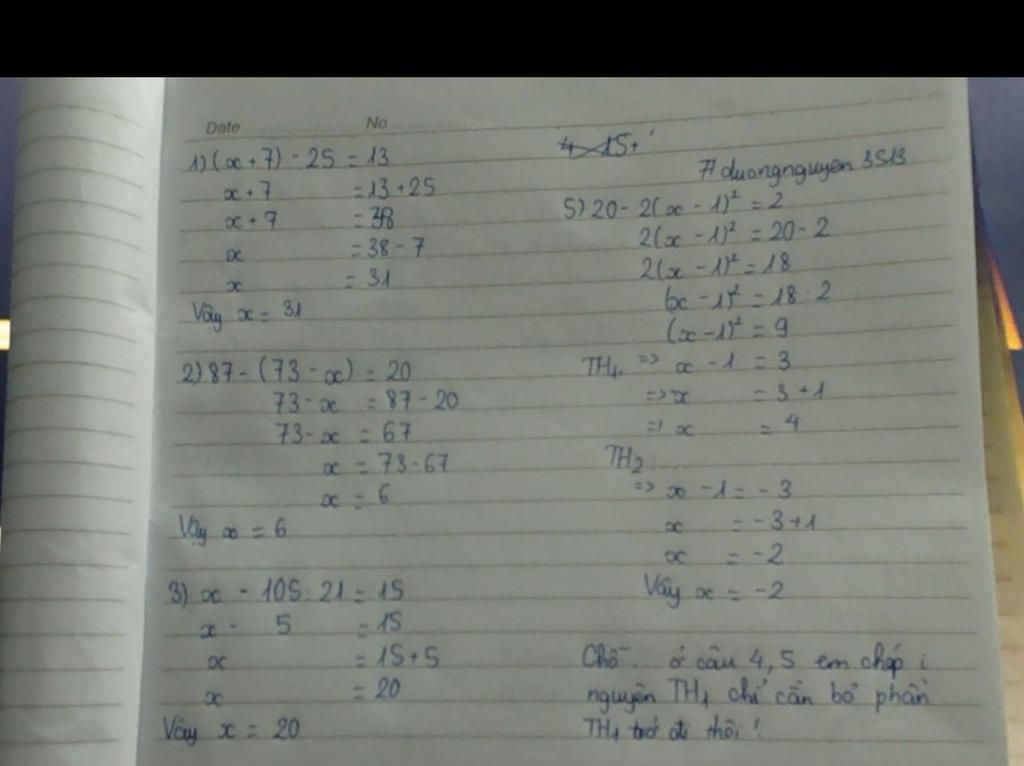 Date No
1) (x + 7) - 25 = 13
x + 7 = 13 + 25
x + 7 = 38
x = 38 - 7
x = 31
Vậy x = 31
2) 87 - (73 - x) = 20
73 - x = 87 - 20
73 - x = 67
x = 73 - 67
x = 6
Vậy x = 6
3) x - 105 : 21 = 15
x - 5 = 15
x = 15 + 5
x = 20
Vậy x = 20
#duongnguyen3513
5) 20 - 2(x - 1)² = 2
2(x - 1)² = 20 - 2
2(x - 1)² = 18
(x - 1)² = 18 : 2
(x - 1)² = 9
TH1. => x - 1 = 3
=> x = 3 + 1
=> x = 4
TH2
=> x - 1 = -3
x = -3 + 1
x = -2
Vậy x = -2
Chỗ ... ở câu 4, 5 em chép
nguyên TH1 chỉ cần bỏ phần
TH1 trở đi thôi !